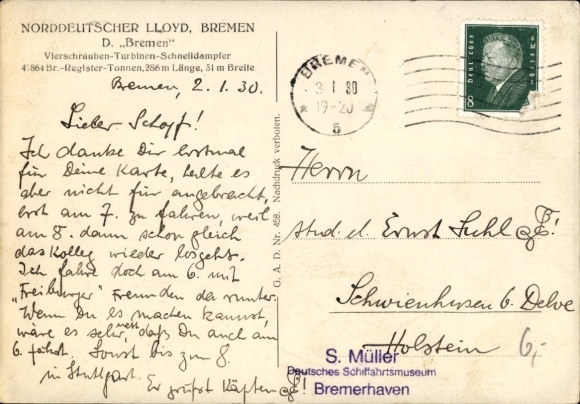 NORDDEUTSCHER LLOYD, BREMEN
D. „Bremen"
Vierschrauben-Turbinen-Schnelldampfer
Br.-Register-Tonnen, 286 m Länge, 31 m Breite
Bremen, 2. 1. 30.
Lieber Schopf!
Ich danke Dir erstmal
für Deine Karte, halte es
aber nicht für angebracht,
erst am 7. zu fahren, weil
am 8. dann schon gleich
das Kolleg wieder losgeht.
Ich fahre doch am 6. mit
„Freiburger" Freunden da runter.
Wenn Du es machen kannst,
wäre es sehr nett, daß Du auch am
6. fährst. Sonst bis zum 8.
in Stuttgart. Er grüßt Käpten
G. A. D. Nr. 458. Nachdruck verboten.
BREMEN
1 30
19-20
5
Deutsches Reich
8
Herrn
stud. d. Ernst
Schwienhusen b. Delve
Holstein
6,-
S. Müller
Deutsches Schiffahrtsmuseum
Bremerhaven